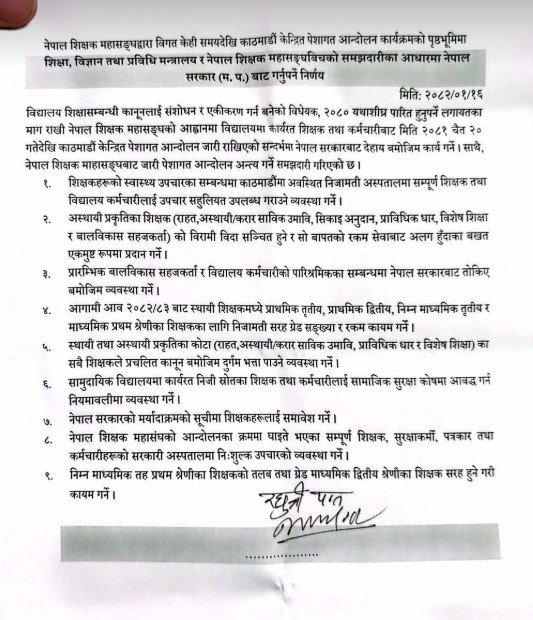 नेपाल शिक्षक महासङ्घद्वारा विगत केही समयदेखि काठमाडौं केन्द्रित पेशागत आन्दोलन कार्यक्रमको पृष्ठभूमिमा
शिक्षा, विज्ञान तथा प्रविधि मन्त्रालय र नेपाल शिक्षक महासङ्घबिचको समझदारीका आधारमा नेपाल
सरकार (म. प.) बाट गर्नुपर्ने निर्णय
मिति: २०८२/०१/१६
विद्यालय शिक्षासम्बन्धी कानूनलाई संशोधन र एकीकरण गर्न बनेको विधेयक, २०८० यथाशीघ्र पारित हुनुपर्ने लगायतका
माग राखी नेपाल शिक्षक महासङ्घको आह्वानमा विद्यालयमा कार्यरत शिक्षक तथा कर्मचारीबाट मिति २०८१ चैत २०
गतेदेखि काठमाडौं केन्द्रित पेशागत आन्दोलन जारी राखिएको सन्दर्भमा नेपाल सरकारबाट देहाय बमोजिम कार्य गर्ने। साथै,
नेपाल शिक्षक माहासङ्घबाट जारी पेशागत आन्दोलन अन्त्य गर्ने समझदारी गरिएको छ।
१. शिक्षकहरूको स्वास्थ्य उपचारका सम्बन्धमा काठमाडौंमा अवस्थित निजामती अस्पतालमा सम्पूर्ण शिक्षक तथा
विद्यालय कर्मचारीलाई उपचार सहुलियत उपलब्ध गराउने व्यवस्था गर्ने।
२. अस्थायी प्रकृतिका शिक्षक (राहत,अस्थायी/करार साविक उमावि, सिकाइ अनुदान, प्राविधिक धार, विशेष शिक्षा
र बालविकास सहजकर्ता) को विरामी विदा सञ्चित हुने र सो बापतको रकम सेवाबाट अलग हुँदाका बखत
एकमुष्ट रूपमा प्रदान गर्ने।
३. प्रारम्भिक बालविकास सहजकर्ता र विद्यालय कर्मचारीको पारिश्रमिकका सम्बन्धमा नेपाल सरकारबाट तोकिए
बमोजिम व्यवस्था गर्ने।
४. आगामी आव २०८२/८३ बाट स्थायी शिक्षकमध्ये प्राथमिक तृतीय, प्राथमिक द्वितीय, निम्न माध्यमिक तृतीय र
माध्यमिक प्रथम श्रेणीका शिक्षकका लागि निजामती सरह ग्रेड सङ्ख्या र रकम कायम गर्ने।
५. स्थायी तथा अस्थायी प्रकृतिका कोटा (राहत,अस्थायी/करार साविक उमावि, प्राविधिक धार र विशेष शिक्षा) का
सबै शिक्षकले प्रचलित कानून बमोजिम दुर्गम भत्ता पाउने व्यवस्था गर्ने।
६. सामुदायिक विद्यालयमा कार्यरत निजी स्रोतका शिक्षक तथा कर्मचारीलाई सामाजिक सुरक्षा कोषमा आवद्ध गर्न
नियमावलीमा व्यवस्था गर्ने।
७. नेपाल सरकारको मर्यादाक्रमको सूचीमा शिक्षकहरूलाई समावेश गर्ने।
८. नेपाल शिक्षक महासंघको आन्दोलनका क्रममा घाइते भएका सम्पूर्ण शिक्षक, सुरक्षाकर्मी, पत्रकार तथा
कर्मचारीहरूको सरकारी अस्पतालमा निःशुल्क उपचारको व्यवस्था गर्ने।
९. निम्न माध्यमिक तह प्रथम श्रेणीका शिक्षकको तलब तथा ग्रेड माध्यमिक द्वितीय श्रेणीका शिक्षक सरह हुने गरी
कायम गर्ने।